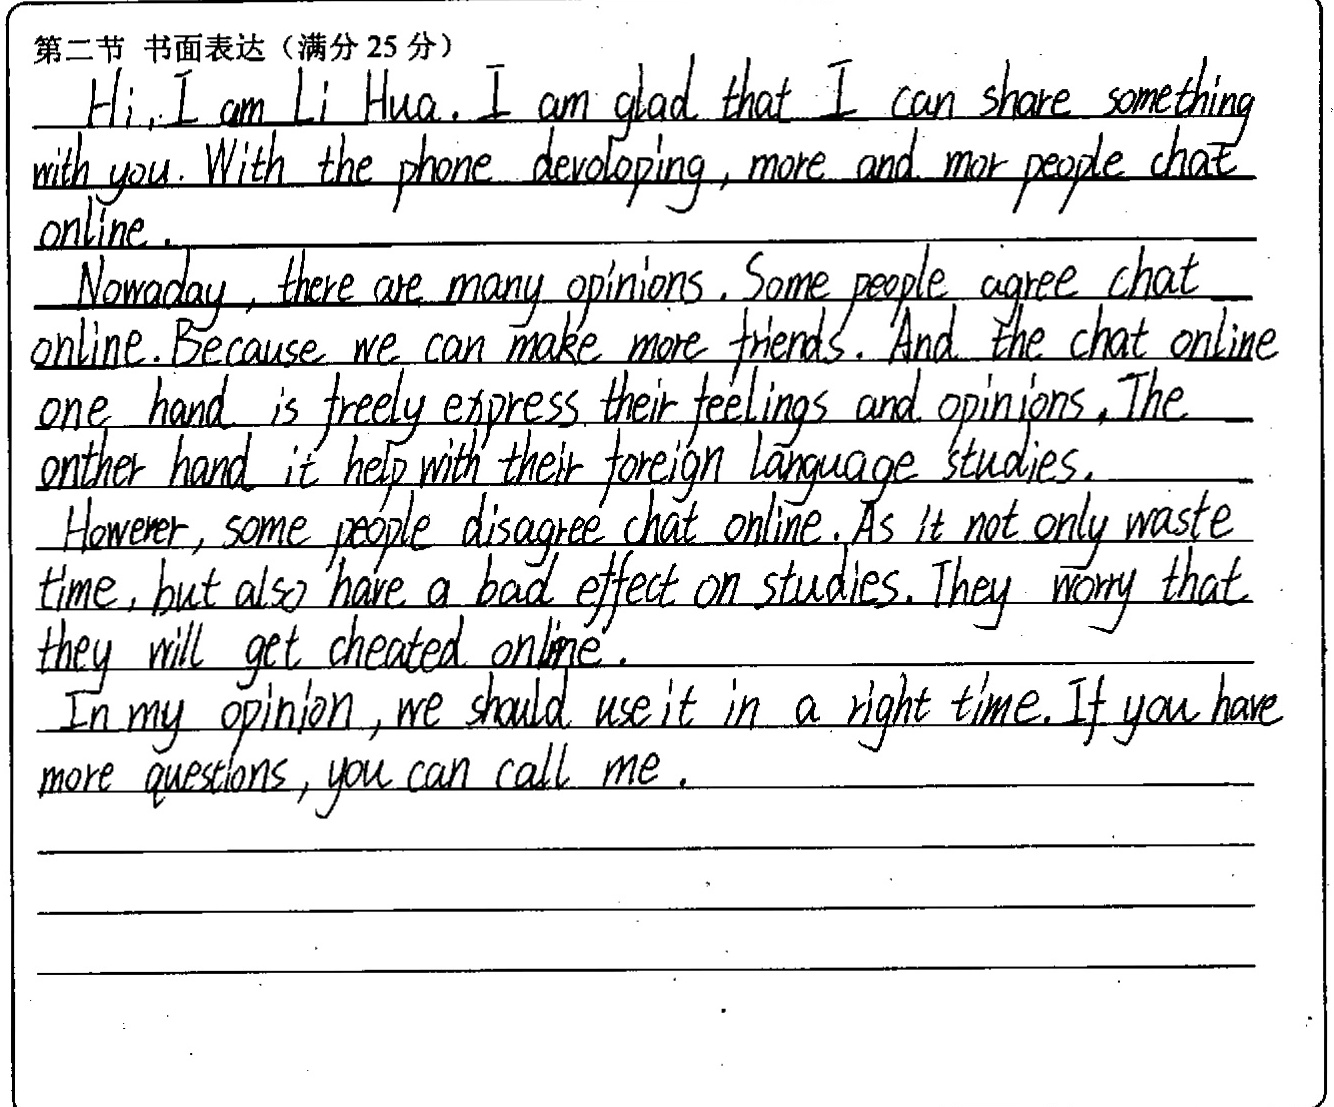 第二节 书面表达（满分 25 分）
Hi, I am Li Hua. I am glad that I can share something
with you. With the phone devoloping, more and mor people chat
online.
Nowaday, there are many opinions. Some people agree chat
online. Because we can make more friends. And the chat online
one hand is freely express their feelings and opinions, The
onther hand it help with their foreign language studies.
However, some people disagree chat online. As it not only waste
time, but also have a bad effect on studies. They worry that
they will get cheated online.
In my opinion, we should use it in a right time. If you have
more questions, you can call me.